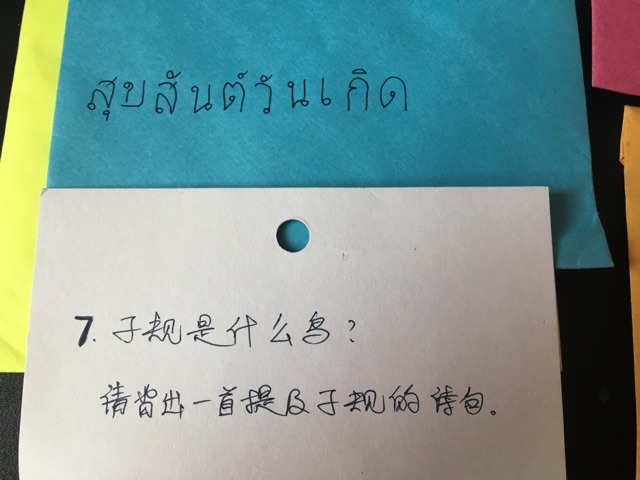 สุขสันต์วันเกิด
7. 子规是什么鸟?
请背出一首提及子规的诗句。